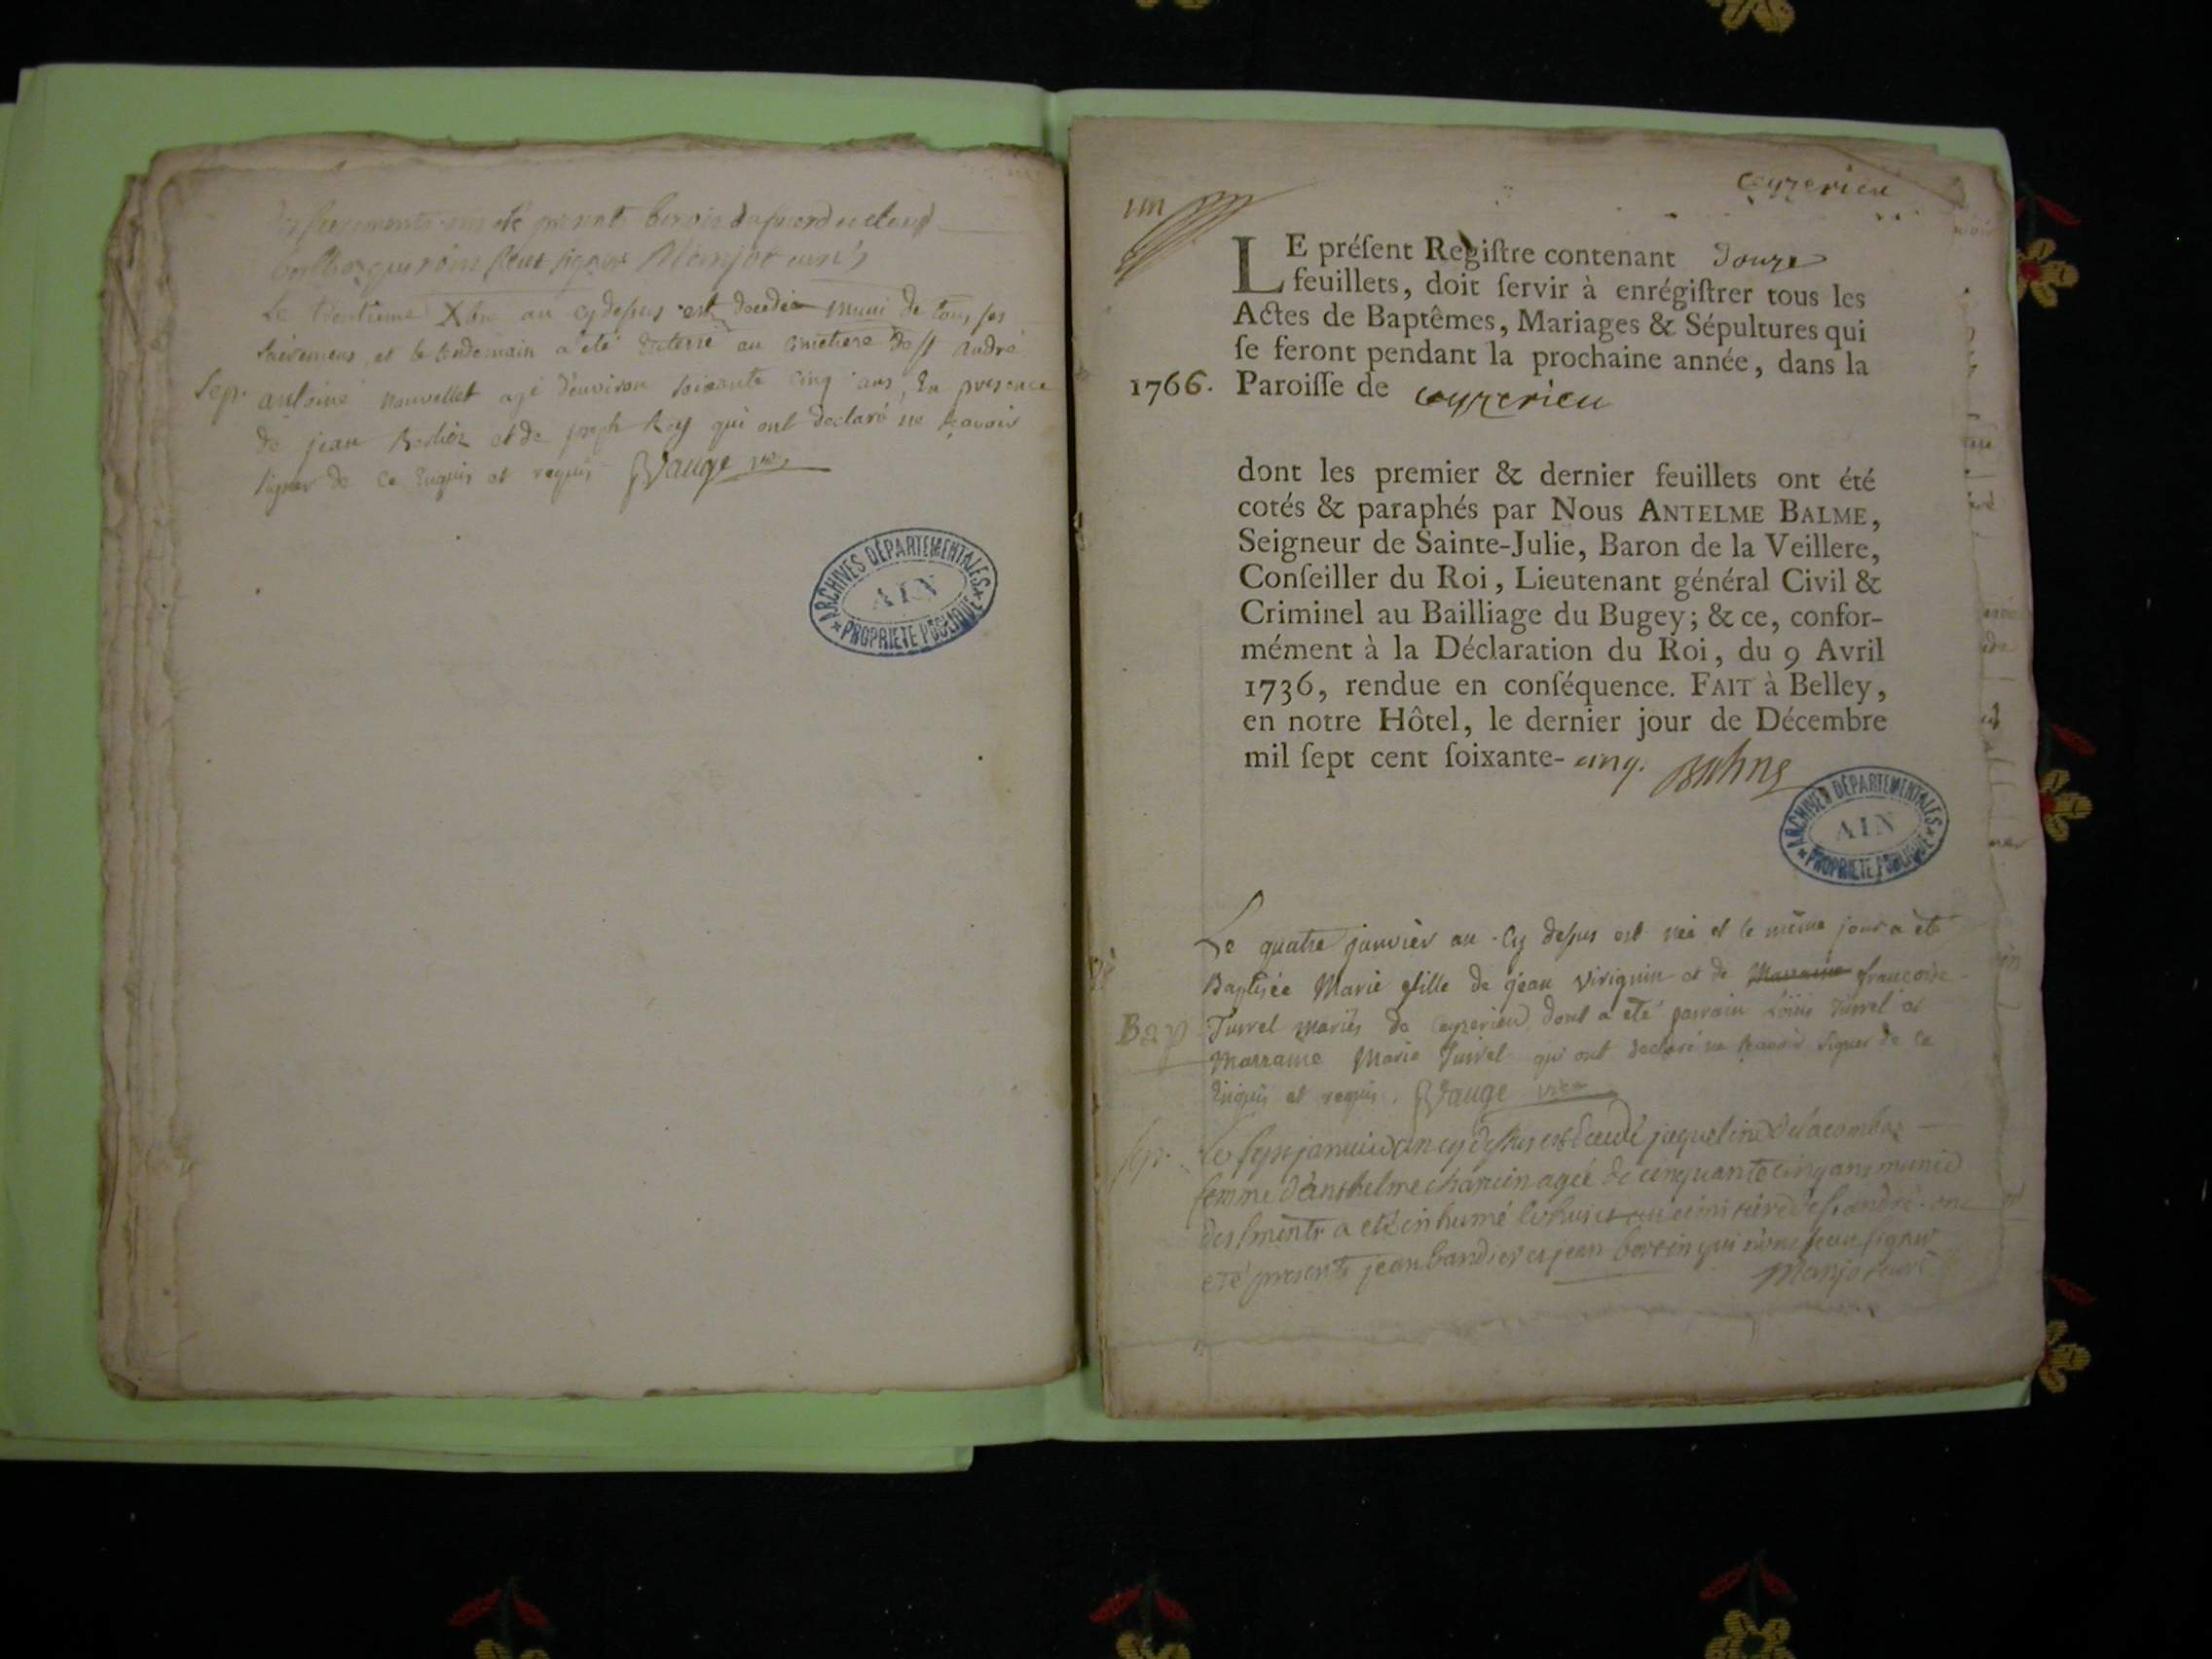 des sacrements ont été presents
qui n'ont sceut signer Manjot curé
Le trentieme Xbre an cy dessus est decedé muni de tous ses
sacremens, et le lendemain a été enterré au cimetiere de st André
Sep. antoine nouvellet agé d'environ soixante cinq ans, En presence
de jean Berlioz et de joseph Rey qui ont declaré ne scavoir
signer de ce Enquis et requis Vauge vic
ARCHIVES DÉPARTEMENTALES
AIN
* PROPRIETE PUBLIQUE *
Ceyzerieu
un
LE préſent Regiſtre contenant douze
feuillets, doit ſervir à enrégiſtrer tous les
Actes de Baptêmes, Mariages & Sépultures qui
ſe feront pendant la prochaine année, dans la
1766. Paroiſſe de Ceyzerieu
dont les premier & dernier feuillets ont été
cotés & paraphés par Nous ANTELME BALME,
Seigneur de Sainte-Julie, Baron de la Veillere,
Conſeiller du Roi, Lieutenant général Civil &
Criminel au Bailliage du Bugey; & ce, confor-
mément à la Déclaration du Roi, du 9 Avril
1736, rendue en conſéquence. FAIT à Belley,
en notre Hôtel, le dernier jour de Décembre
mil ſept cent ſoixante- cinq. Balme
ARCHIVES DÉPARTEMENTALES
AIN
* PROPRIETE PUBLIQUE *
Le quatre janvier an cy dessus est née et le même jour a été
Baptisée Marie fille de jean Virignin et de Marraine francoise
Bap Turrel mariés de Ceyzerieu dont a été parrain Loüis Turrel et
Marraine Marie Turrel qui ont declaré ne scavoir signer de ce
Enquis et requis. Vauge vic
Sep. Le sept janvier an cy dessus est decedé jaqueline delacombaz
femme d'anthelme charcin agée de cinquante cinq ans munie
des sments a eté inhumé le huict au cimitiere de st andré. ont
eté presents jean bandier et jean berrin qui n'ont sceu signer
Manjot curé